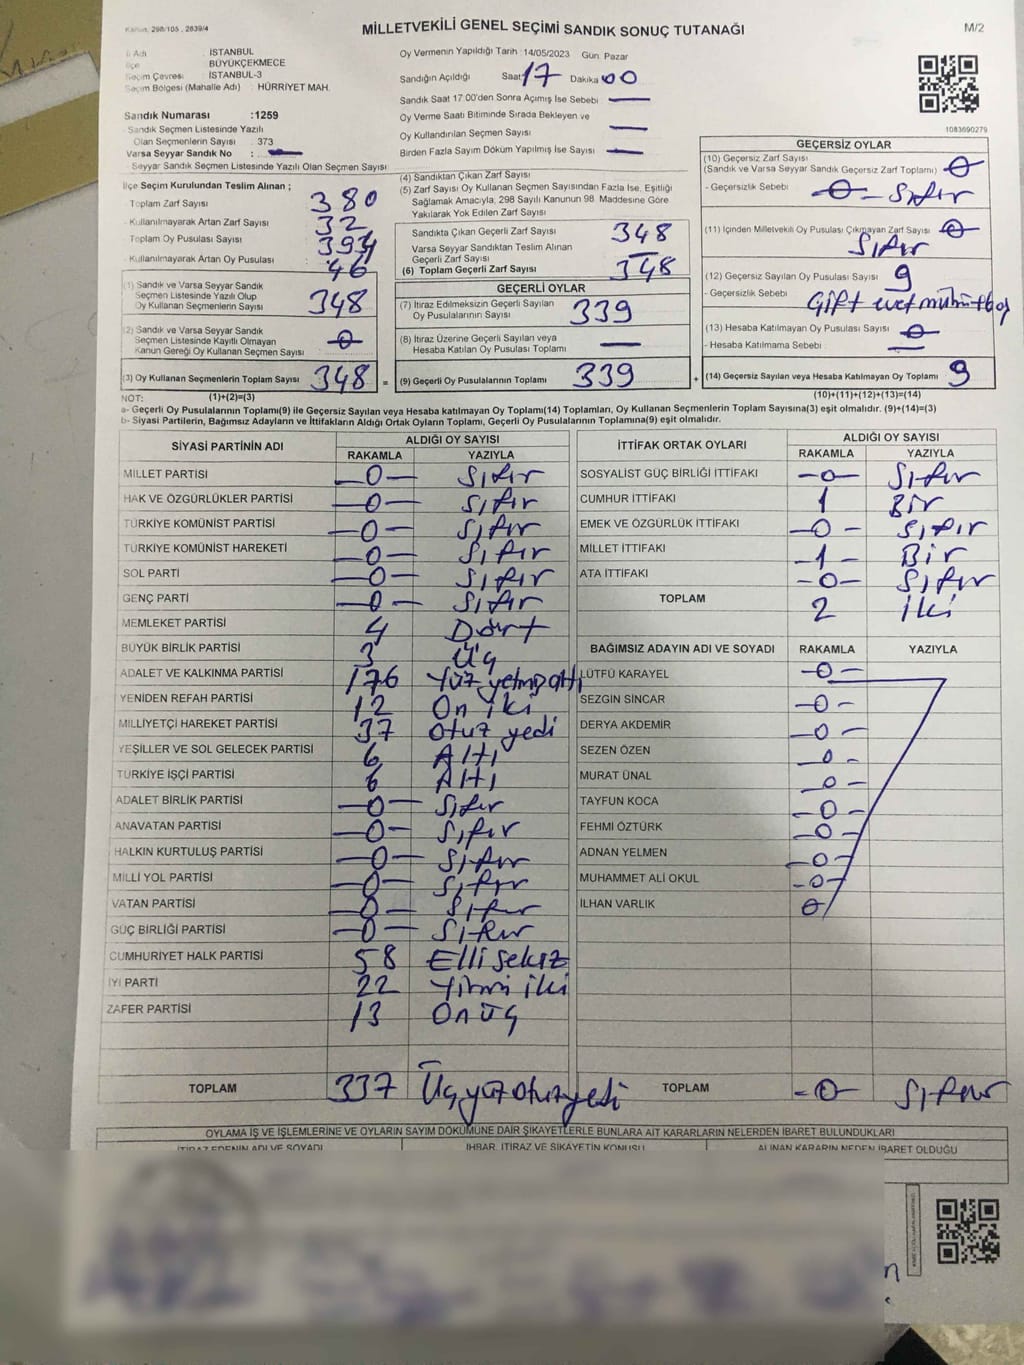 Kanun: 298/105, 2839/4
MİLLETVEKİLİ GENEL SEÇİMİ SANDIK SONUÇ TUTANAĞI
M/2
İl Adı : İSTANBUL
İlçe : BÜYÜKÇEKMECE
Seçim Çevresi : İSTANBUL-3
Seçim Bölgesi (Mahalle Adı) : HÜRRİYET MAH.
Sandık Numarası :1259
Sandık Seçmen Listesinde Yazılı
Olan Seçmenlerin Sayısı : 373
Varsa Seyyar Sandık No : —
Seyyar Sandık Seçmen Listesinde Yazılı Olan Seçmen Sayısı
Oy Vermenin Yapıldığı Tarih : 14/05/2023 Gün: Pazar
Sandığın Açıldığı Saat 17 Dakika 00
Sandık Saat 17:00'den Sonra Açılmış İse Sebebi —
Oy Verme Saati Bitiminde Sırada Bekleyen ve
Oy Kullandırılan Seçmen Sayısı —
Birden Fazla Sayım Döküm Yapılmış İse Sayısı —
1083690279
İlçe Seçim Kurulundan Teslim Alınan ;
Toplam Zarf Sayısı : 380
Kullanılmayarak Artan Zarf Sayısı : 32
Toplam Oy Pusulası Sayısı : 394
Kullanılmayarak Artan Oy Pusulası : 46
(1) Sandık ve Varsa Seyyar Sandık
Seçmen Listesinde Yazılı Olup
Oy Kullanan Seçmenlerin Sayısı 348
(2) Sandık ve Varsa Seyyar Sandık
Seçmen Listesinde Kayıtlı Olmayan
Kanun Gereği Oy Kullanan Seçmen Sayısı 0
(3) Oy Kullanan Seçmenlerin Toplam Sayısı 348 =
(4) Sandıktan Çıkan Zarf Sayısı
(5) Zarf Sayısı Oy Kullanan Seçmen Sayısından Fazla İse, Eşitliği
Sağlamak Amacıyla, 298 Sayılı Kanunun 98. Maddesine Göre
Yakılarak Yok Edilen Zarf Sayısı
Sandıkta Çıkan Geçerli Zarf Sayısı 348
Varsa Seyyar Sandıktan Teslim Alınan
Geçerli Zarf Sayısı —
(6) Toplam Geçerli Zarf Sayısı 348
GEÇERLİ OYLAR
(7) İtiraz Edilmeksizin Geçerli Sayılan
Oy Pusulalarının Sayısı 339
(8) İtiraz Üzerine Geçerli Sayılan veya
Hesaba Katılan Oy Pusulası Toplamı —
(9) Geçerli Oy Pusulalarının Toplamı 339 +
GEÇERSİZ OYLAR
(10) Geçersiz Zarf Sayısı
(Sandık ve Varsa Seyyar Sandık Geçersiz Zarf Toplamı) : 0
- Geçersizlik Sebebi : —0— Sıfır
(11) İçinden Milletvekili Oy Pusulası Çıkmayan Zarf Sayısı : 0
Sıfır
(12) Geçersiz Sayılan Oy Pusulası Sayısı : 9
- Geçersizlik Sebebi : Çift evet mühür
(13) Hesaba Katılmayan Oy Pusulası Sayısı : 0
- Hesaba Katılmama Sebebi : —
(14) Geçersiz Sayılan veya Hesaba Katılmayan Oy Toplamı 9
NOT: (1)+(2)=(3) (10)+(11)+(12)+(13)=(14)
a- Geçerli Oy Pusulalarının Toplamı(9) ile Geçersiz Sayılan veya Hesaba katılmayan Oy Toplamı(14) Toplamları, Oy Kullanan Seçmenlerin Toplam Sayısına(3) eşit olmalıdır. (9)+(14)=(3)
b- Siyasi Partilerin, Bağımsız Adayların ve İttifakların Aldığı Ortak Oyların Toplamı, Geçerli Oy Pusulalarının Toplamına(9) eşit olmalıdır.
SİYASİ PARTİNİN ADI ALDIĞI OY SAYISI
RAKAMLA YAZIYLA
MİLLET PARTİSİ —0— Sıfır
HAK VE ÖZGÜRLÜKLER PARTİSİ —0— Sıfır
TÜRKİYE KOMÜNİST PARTİSİ —0— Sıfır
TÜRKİYE KOMÜNİST HAREKETİ —0— Sıfır
SOL PARTİ —0— Sıfır
GENÇ PARTİ —0— Sıfır
MEMLEKET PARTİSİ 4 Dört
BÜYÜK BİRLİK PARTİSİ 3 Üç
ADALET VE KALKINMA PARTİSİ 176 Yüz yetmiş altı
YENİDEN REFAH PARTİSİ 12 On iki
MİLLİYETÇİ HAREKET PARTİSİ 37 Otuz yedi
YEŞİLLER VE SOL GELECEK PARTİSİ 6 Altı
TÜRKİYE İŞÇİ PARTİSİ 6 Altı
ADALET BİRLİK PARTİSİ —0— Sıfır
ANAVATAN PARTİSİ —0— Sıfır
HALKIN KURTULUŞ PARTİSİ —0— Sıfır
MİLLİ YOL PARTİSİ —0— Sıfır
VATAN PARTİSİ —0— Sıfır
GÜÇ BİRLİĞİ PARTİSİ —0— Sıfır
CUMHURİYET HALK PARTİSİ 58 Elli sekiz
İYİ PARTİ 22 Yirmi iki
ZAFER PARTİSİ 13 On üç
TOPLAM 337 Üçyüz otuzyedi
İTTİFAK ORTAK OYLARI ALDIĞI OY SAYISI
RAKAMLA YAZIYLA
SOSYALİST GÜÇ BİRLİĞİ İTTİFAKI —0— Sıfır
CUMHUR İTTİFAKI 1 Bir
EMEK VE ÖZGÜRLÜK İTTİFAKI —0— Sıfır
MİLLET İTTİFAKI —1— Bir
ATA İTTİFAKI —0— Sıfır
TOPLAM 2 İki
BAĞIMSIZ ADAYIN ADI VE SOYADI RAKAMLA YAZIYLA
LÜTFÜ KARAYEL —0—
SEZGİN SİNCAR —0—
DERYA AKDEMİR —0—
SEZEN ÖZEN —0—
MURAT ÜNAL —0—
TAYFUN KOCA —0—
FEHMİ ÖZTÜRK —0—
ADNAN YELMEN —0—
MUHAMMET ALİ OKUL —0—
İLHAN VARLIK 0
TOPLAM —0— Sıfır
OYLAMA İŞ VE İŞLEMLERİNE VE OYLARIN SAYIM DÖKÜMÜNE DAİR ŞİKAYETLERLE BUNLARA AİT KARARLARIN NELERDEN İBARET BULUNDUKLARI
İTİRAZ EDENİN ADI VE SOYADI İHBAR, İTİRAZ VE ŞİKAYETİN KONUSU ALINAN KARARIN NEDEN İBARET OLDUĞU